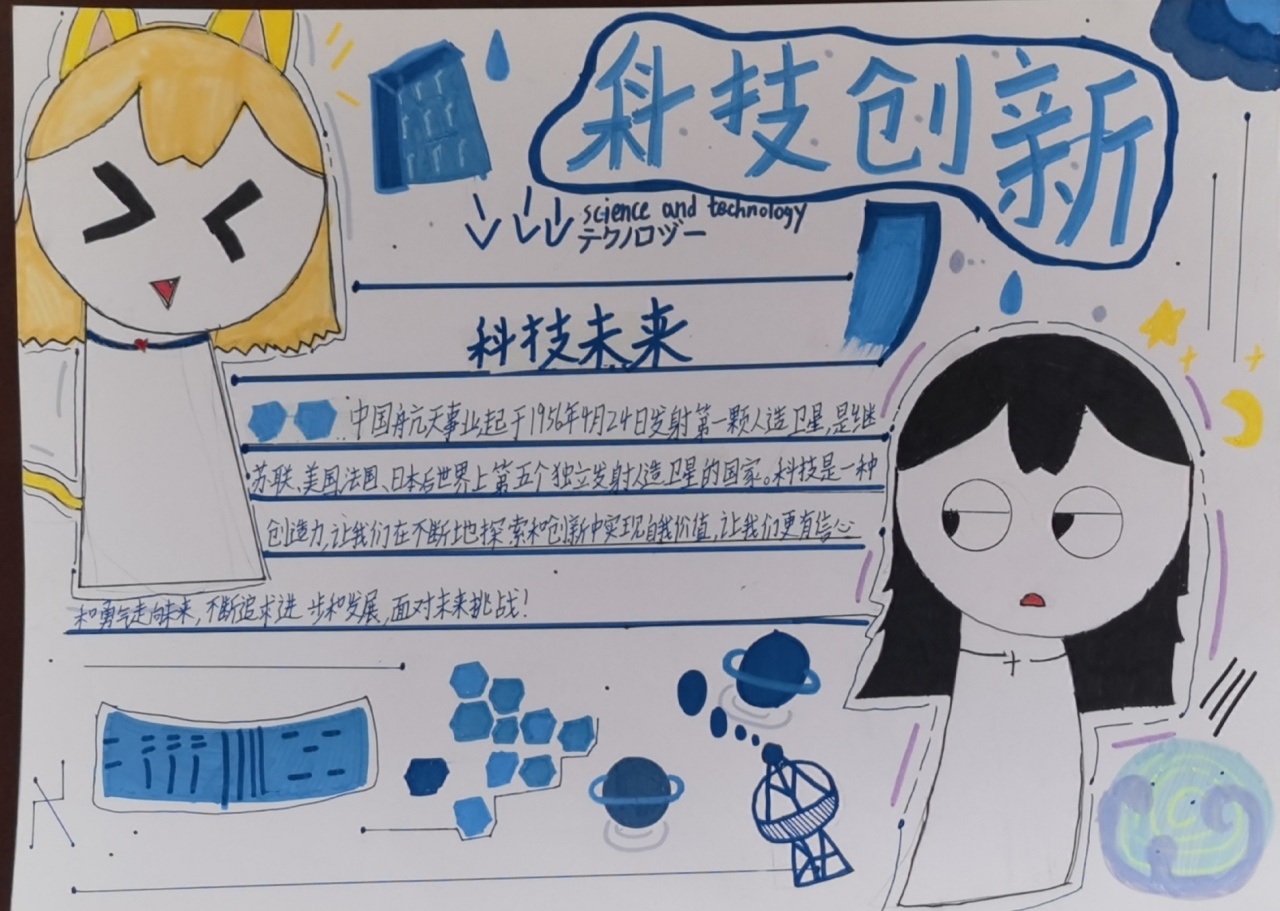 科技创新
science and technology
テクノロヅー
科技未来
中国航天事业起于1956年4月24日发射第一颗人造卫星,是继
苏联、美国、法国、日本后世界上第五个独立发射人造卫星的国家。科技是一种
创造力,让我们在不断地探索和创新中实现自我价值,让我们更有信心
和勇气走向未来,不断追求进步和发展,面对未来挑战!